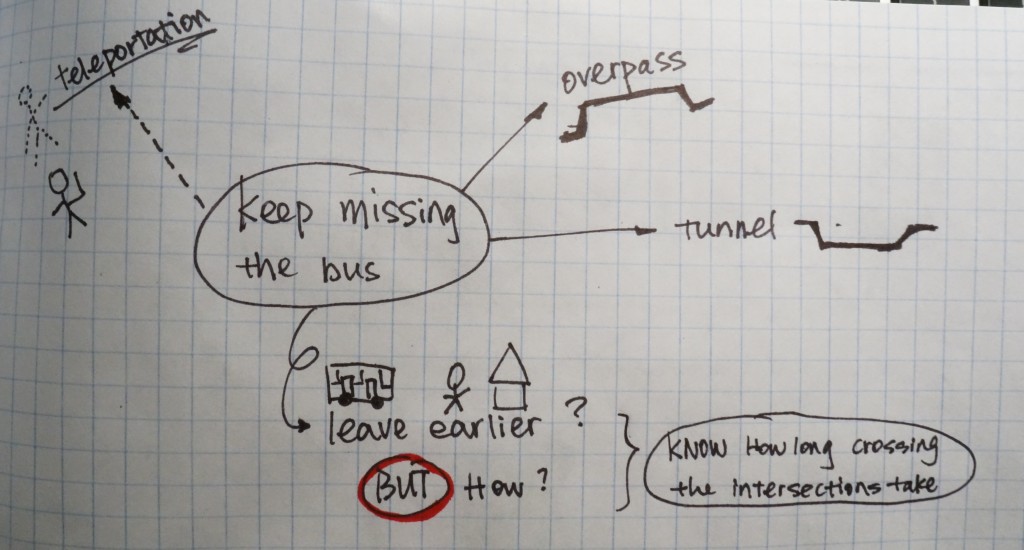 teleportation
overpass
keep missing
the bus
tunnel
leave earlier ?
BUT How?
KNOW How long crossing
the intersections take